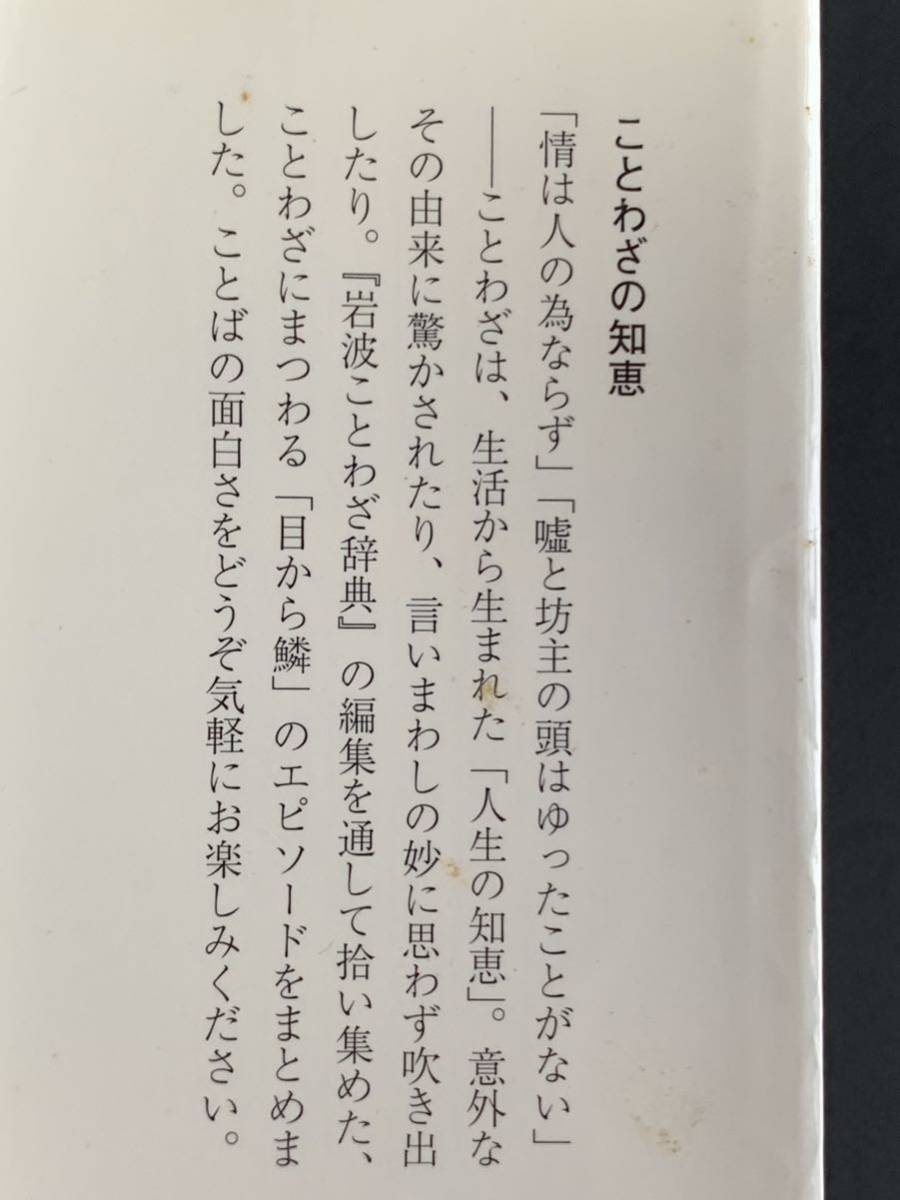 ことわざの知恵
「情は人の為ならず」「嘘と坊主の頭はゆったことがない」
――ことわざは、生活から生まれた「人生の知恵」。意外な
その由来に驚かされたり、言いまわしの妙に思わず吹き出
したり。『岩波ことわざ辞典』の編集を通して拾い集めた、
ことわざにまつわる「目から鱗」のエピソードをまとめま
した。ことばの面白さをどうぞ気軽にお楽しみください。